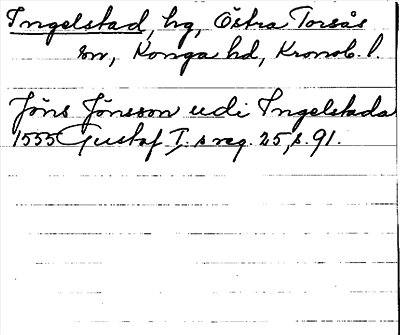 Ingelstad, hg, Östra Torsås
sn, Konga hd, Kronob. l.
Jöns Jönsson udi Ingelstada
1555 Gustaf I.s reg. 25, s. 91.